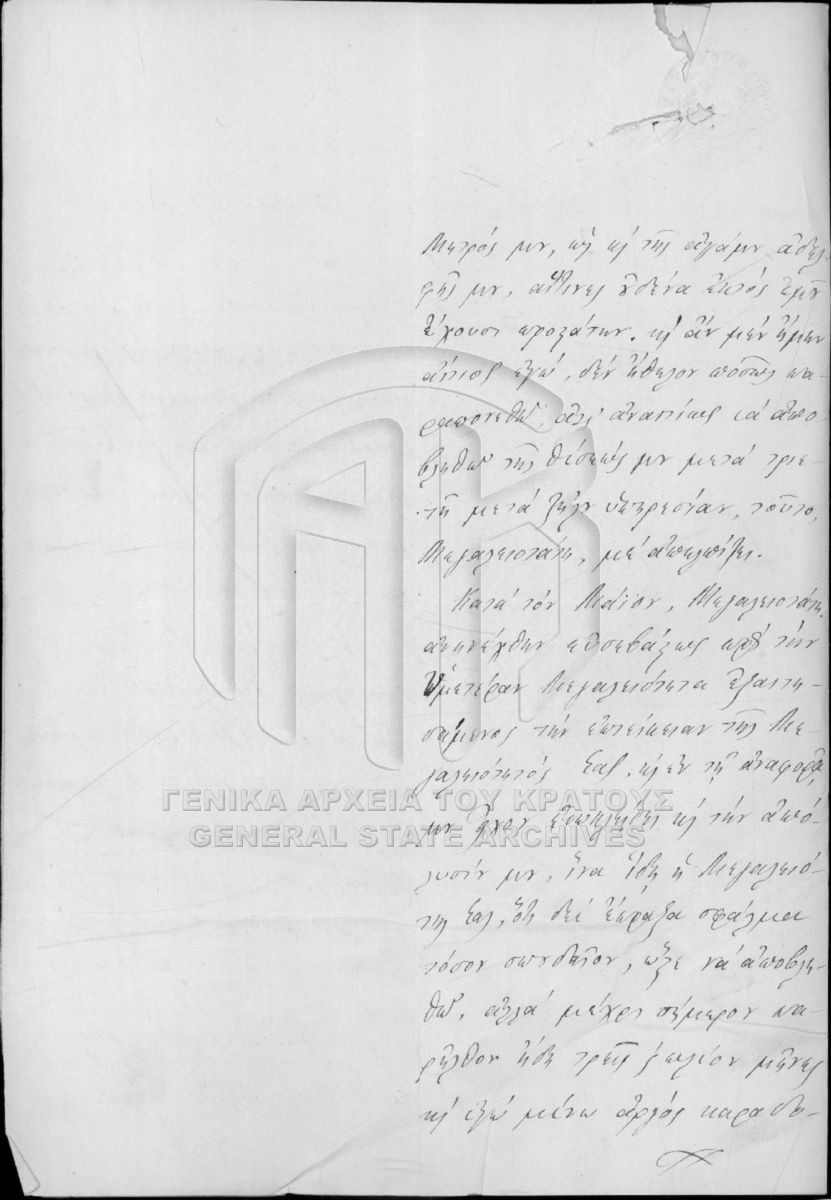 Μητρός μου, καὶ κ͵ τῆς ἀγάμου ἀδελ-
φῆς μου, αἵτινες οὐδένα ἐκτός ἐμοῦ
ἔχουσι προστάτην. κ͵ ἄν μέν ἤμην
αἴτιος ἐγώ, δέν ἤθελον ποσῶς πα-
ραπονεθῶ, ἀλλ' ἀναιτίως νά ἀπο-
βληθῶ τῆς θέσεώς μου μετά τριε-
τῆ μετά ζήλου ὑπηρεσίαν, τοῦτο,
Μεγαλειοτάτη, μέ ἀπελπίζει.
Κατά τόν Μάϊον, Μεγαλειοτάτη,
ἀπηνέχθην εὐσεβάστως πρό τήν
Ὑμετέραν Μεγαλειότητα ἐξαιτη-
σάμενος τήν ἐπιείκειαν τῆς Με-
γαλειότητός Σας, κ͵ ἐν τῇ ἀναφορᾷ
μου εἶχον ἐσωκλείσει κ͵ τήν ἀπό-
λυσίν μου, ἵνα ἴδῃ ἡ Μεγαλειό-
της Σας, ὅτι δέν ἔπραξα σφάλμα
τόσον σπουδαῖον, ὥστε νά ἀποβλη-
θῶ, ἀλλά μέχρι σήμερον πα-
ρῆλθον ἤδη τρεῖς σχεδόν μῆνες
κ͵ ἐγώ μένω ἀργός καραδο-
ΓΕΝΙΚΑ ΑΡΧΕΙΑ ΤΟΥ ΚΡΑΤΟΥΣ
GENERAL STATE ARCHIVES